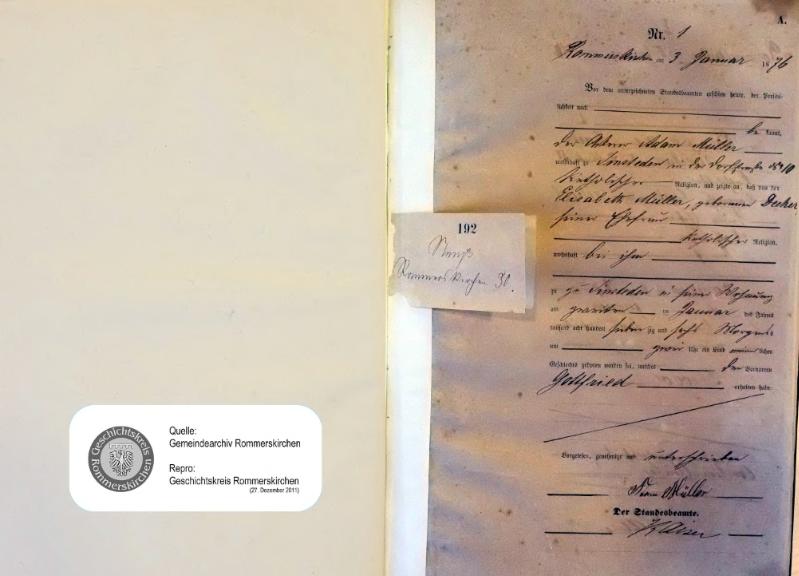 A.
Nr. 1
Rommerskirchen am 3 Januar 1876
Vor dem unterzeichneten Standesbeamten erschien heute, der Persön-
lichkeit nach
be kannt,
der Ackerer Adam Müller
wohnhaft zu Sinsteden in der Dorfstraße
katholischer Religion, und zeigte an, daß von der
Elisabeth Müller, geborenen Decker
seiner Ehefrau
katholischer Religion,
wohnhaft bei ihm
zu Sinsteden in seiner Wohnung
am zweiten Januar des Jahres
tausend acht hundert sieben zig und sechs Morgens
um zwei Uhr ein Kind männlichen
Geschlechts geboren worden sei, welches den Vornamen
Gottfried erhalten habe.
Vorgelesen, genehmigt und unterschrieben
Müller
Der Standesbeamte.
192
Neuß
Rommerskirchen 30.
Geschichtskreis Rommerskirchen
Quelle:
Gemeindearchiv Rommerskirchen
Repro:
Geschichtskreis Rommerskirchen
(27. Dezember 2011)